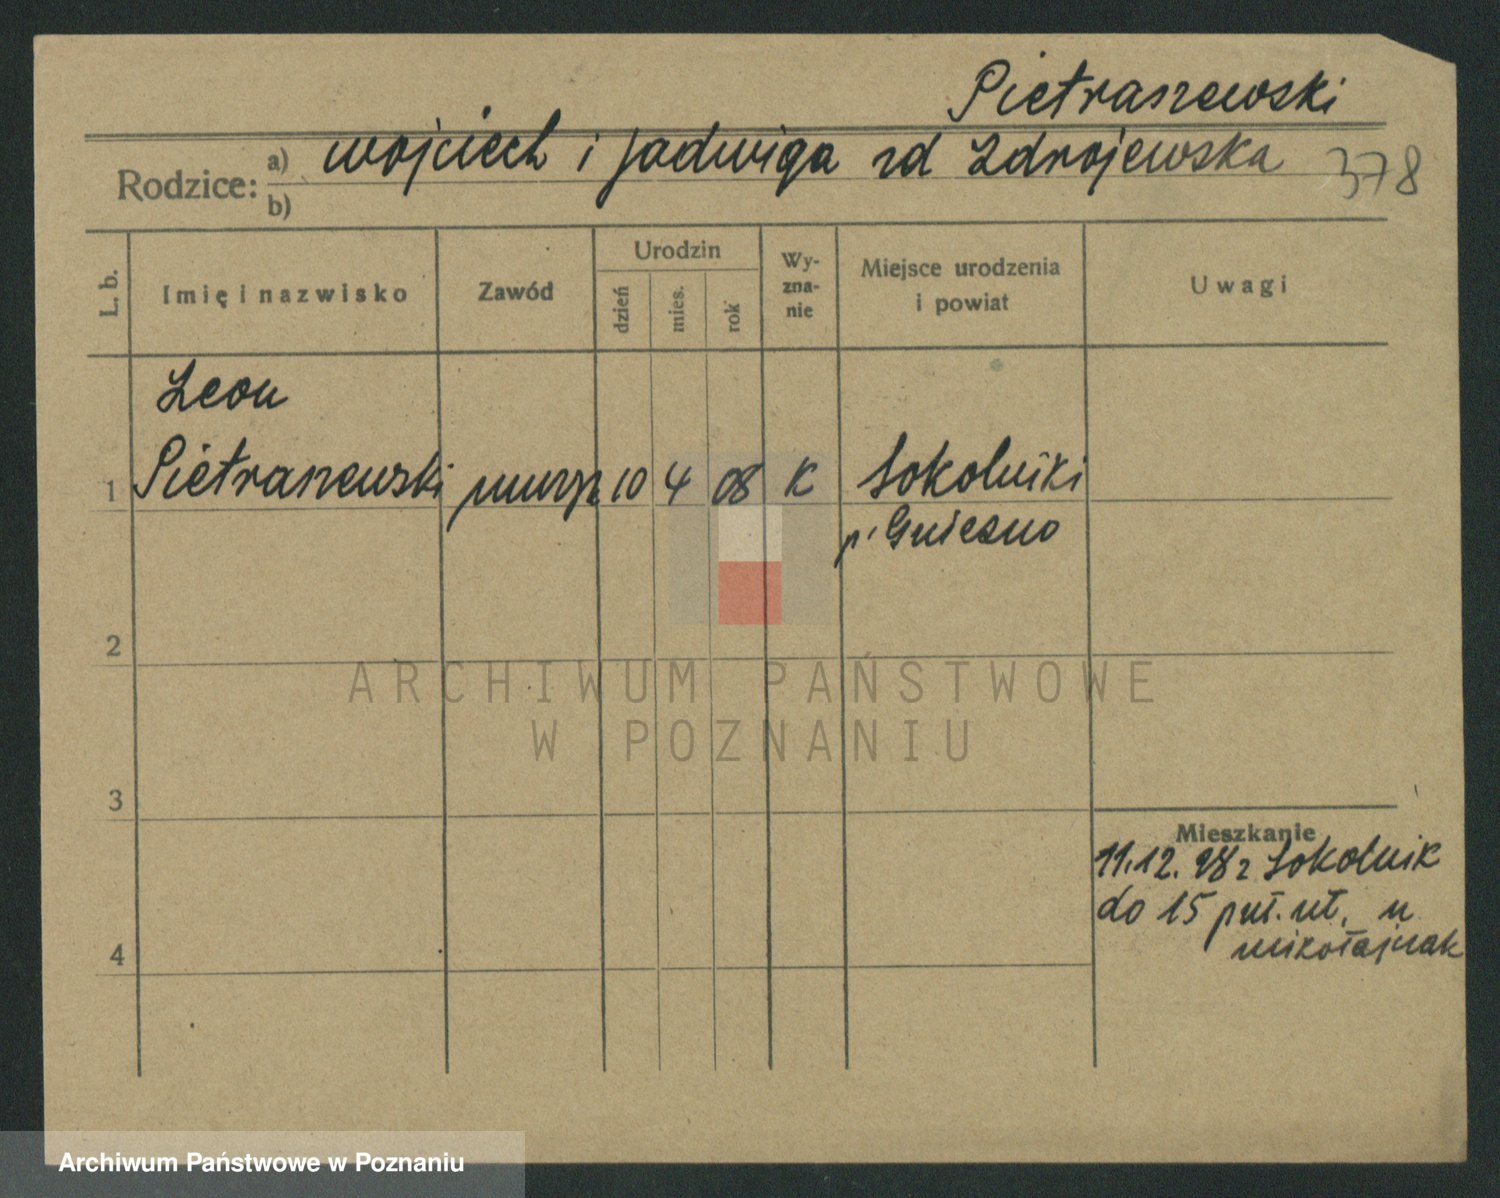 Pietraszewski
Rodzice: a) Wojciech i Jadwiga zd Zdrojewska 378
b)
L. b. Imię i nazwisko Zawód Urodzin dzień mies. rok Wy-zna-nie Miejsce urodzenia i powiat Uwagi
Leon
1 Pietraszewski 10 4 08 K Sokolniki
p. Gniezno
2
ARCHIWUM PAŃSTWOWE
W POZNANIU
3
Mieszkanie
11.12. 28 z Sokolnik
do 15 uł. u
Mikołajczak
4
Archiwum Państwowe w Poznaniu